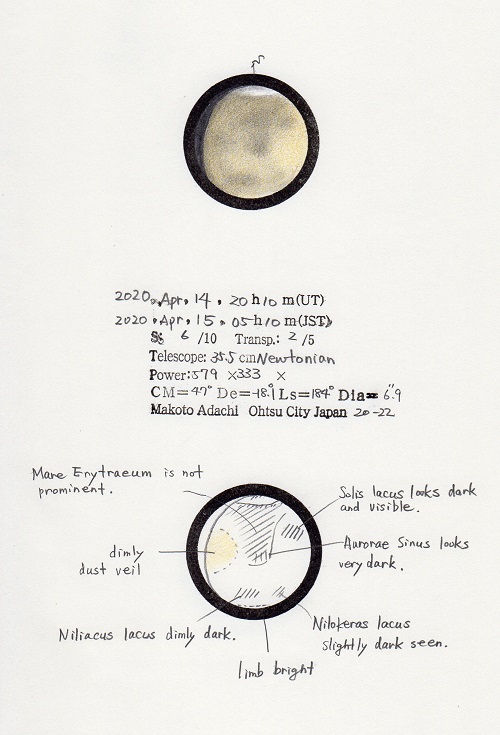 2020. Apr. 14. 20 h 10 m (UT)
2020. Apr. 15. 05 h 10 m (JST)
S: 6 /10 Transp.: 2 /5
Telescope: 35.5 cm Newtonian
Power: 579 ×333 ×
CM=47° De=-18.1° Ls=184° Dia= 6.9"
Makoto Adachi Ohtsu City Japan 20-22
Mare Erytraeum is not
prominent.
Solis lacus looks dark
and visible.
Aurorae Sinus looks
very dark.
dimly
dust veil
Niliacus lacus dimly dark.
Nilokeras lacus
slightly dark seen.
limb bright